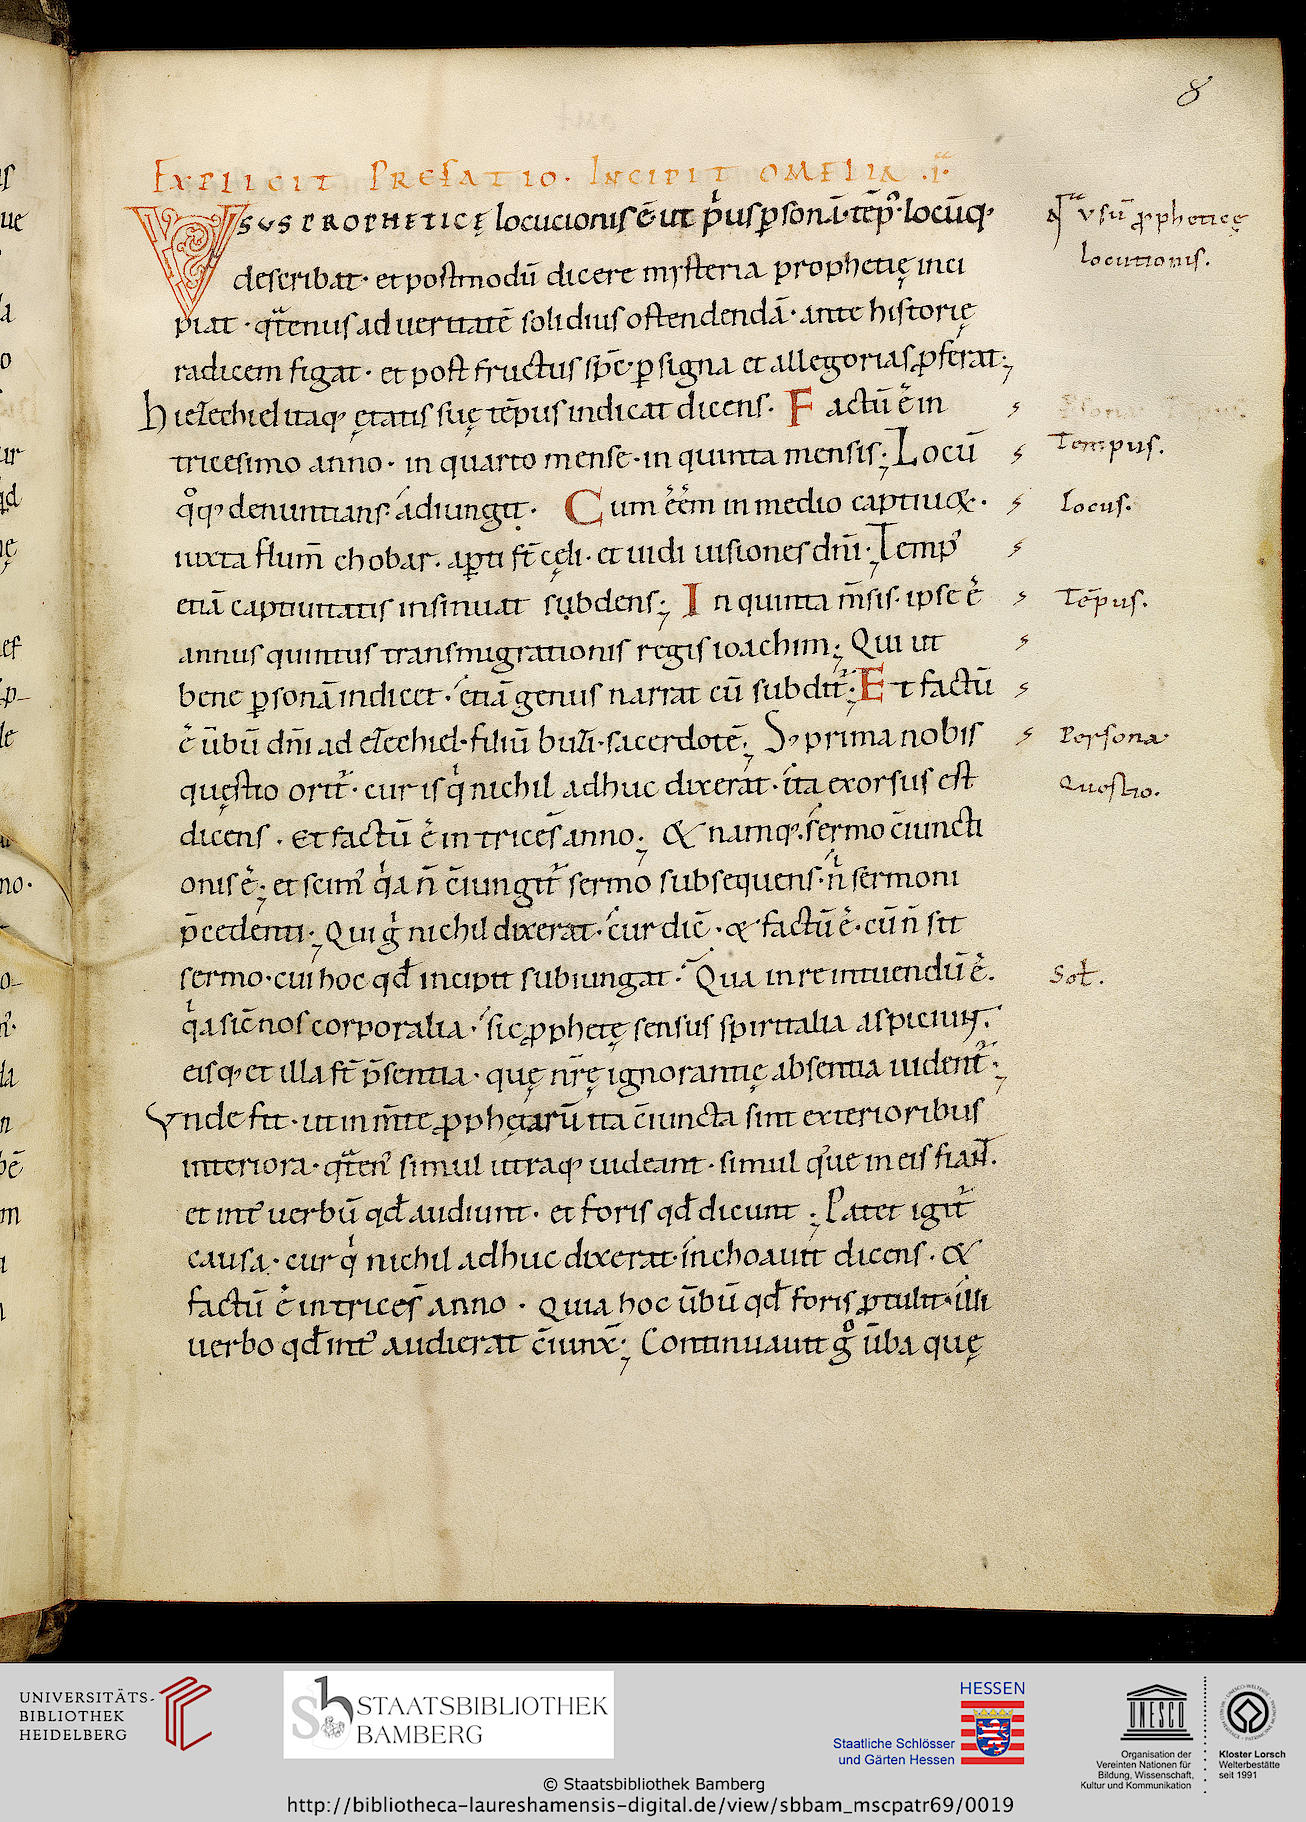 8
EXPLICIT PREFATIO. INCIPIT OMELIA .I.
VSUS PROPHETICĘ locucionis ē ut p͛us ꝑsonā· tēp᾽· locūq·
describat· et postmodū dicere mysteria prophetię inci
piat · qͣtenus ad ueritatē solidius ostendendā· ante historię
radicem figat· et post fructus sp̄c· ꝑ signa et allegorias ꝓferat·,
hiezechiel itaq· ętatis suę tēpus indicat dicens. Factū ē in
tricesimo anno· in quarto mense· in quinta mensis·, Locū
qͦq· denuntians adiungit· Cum eēm in medio captiuo&·
iuxta flum̄ chobar· aꝑti st̄ cęli· et uidi uisiones dn̄i·, Temp᾽
etiā captiuitatis insinuat subdens·, In quinta m̄sis· ipse ē
annus quintus transmigrationis regis ioachim·, Qui ut
bene ꝑsonā indicet· etiā genus narrat cū subdit᷑·, Et factū
ē ūbū dn̄i ad ezechiel· filiū buzi· sacerdotē·, S᾽ prima nobis
quęstio orit᷑· cur is q͛ nichil adhuc dixerat· ita exorsus est
dicens · Et factū ē in trices̄ anno·, & namq· sermo c̄iuncti
onis ē·, et scim᾽ q͛a n̄ c̄iungit᷑ sermo subsequens· n͛ sermoni
p̄cedenti·, Qui g͛ nichil dixerat· cur dic̄ · & factū ē· cū n̄ sit
sermo· cui hoc qd̄ incipit subiungat᷑· Qua in re intuendū ē.
q͛a sic̄ nos corporalia· sic ꝓphetę sensus spiritalia aspiciunt.
eisq· et illa st̄ p̄sentia· quę nr̄ę ignorantię absentia uident᷑·,
Vnde fit· ut in m̄te ꝓphetarū ita c̄iuncta sint exterioribus
interiora· qͣten᾽ simul utraq· uideant· simulq᾽ue in eis fiant.
et int᾽ uerbū qd̄ audiunt· et foris qd̄ dicunt ·, Patet igit᷑
causa· cur q͛ nichil adhuc dixerat· inchoauit dicens· &
factū ē in trices̄ anno · quia hoc ūbū qd̄ foris ꝓtulit· illi
uerbo qd̄ int᾽ audierat c̄iunx̄·, Continuauit gͦ ūba quę
Vsū ꝓpheticę
locutionis.
Tempus.
Locus.
Tēpus.
Persona
Questio.
Sol̄.
UNIVERSITÄTS-
BIBLIOTHEK
HEIDELBERG
STAATSBIBLIOTHEK
BAMBERG
HESSEN
Staatliche Schlösser
und Gärten Hessen
UNESCO
Organisation der
Vereinten Nationen für
Bildung, Wissenschaft,
Kultur und Kommunikation
Kloster Lorsch
Welterbestätte
seit 1991
© Staatsbibliothek Bamberg
http://bibliotheca-laureshamensis-digital.de/view/sbbam_mscpatr69/0019